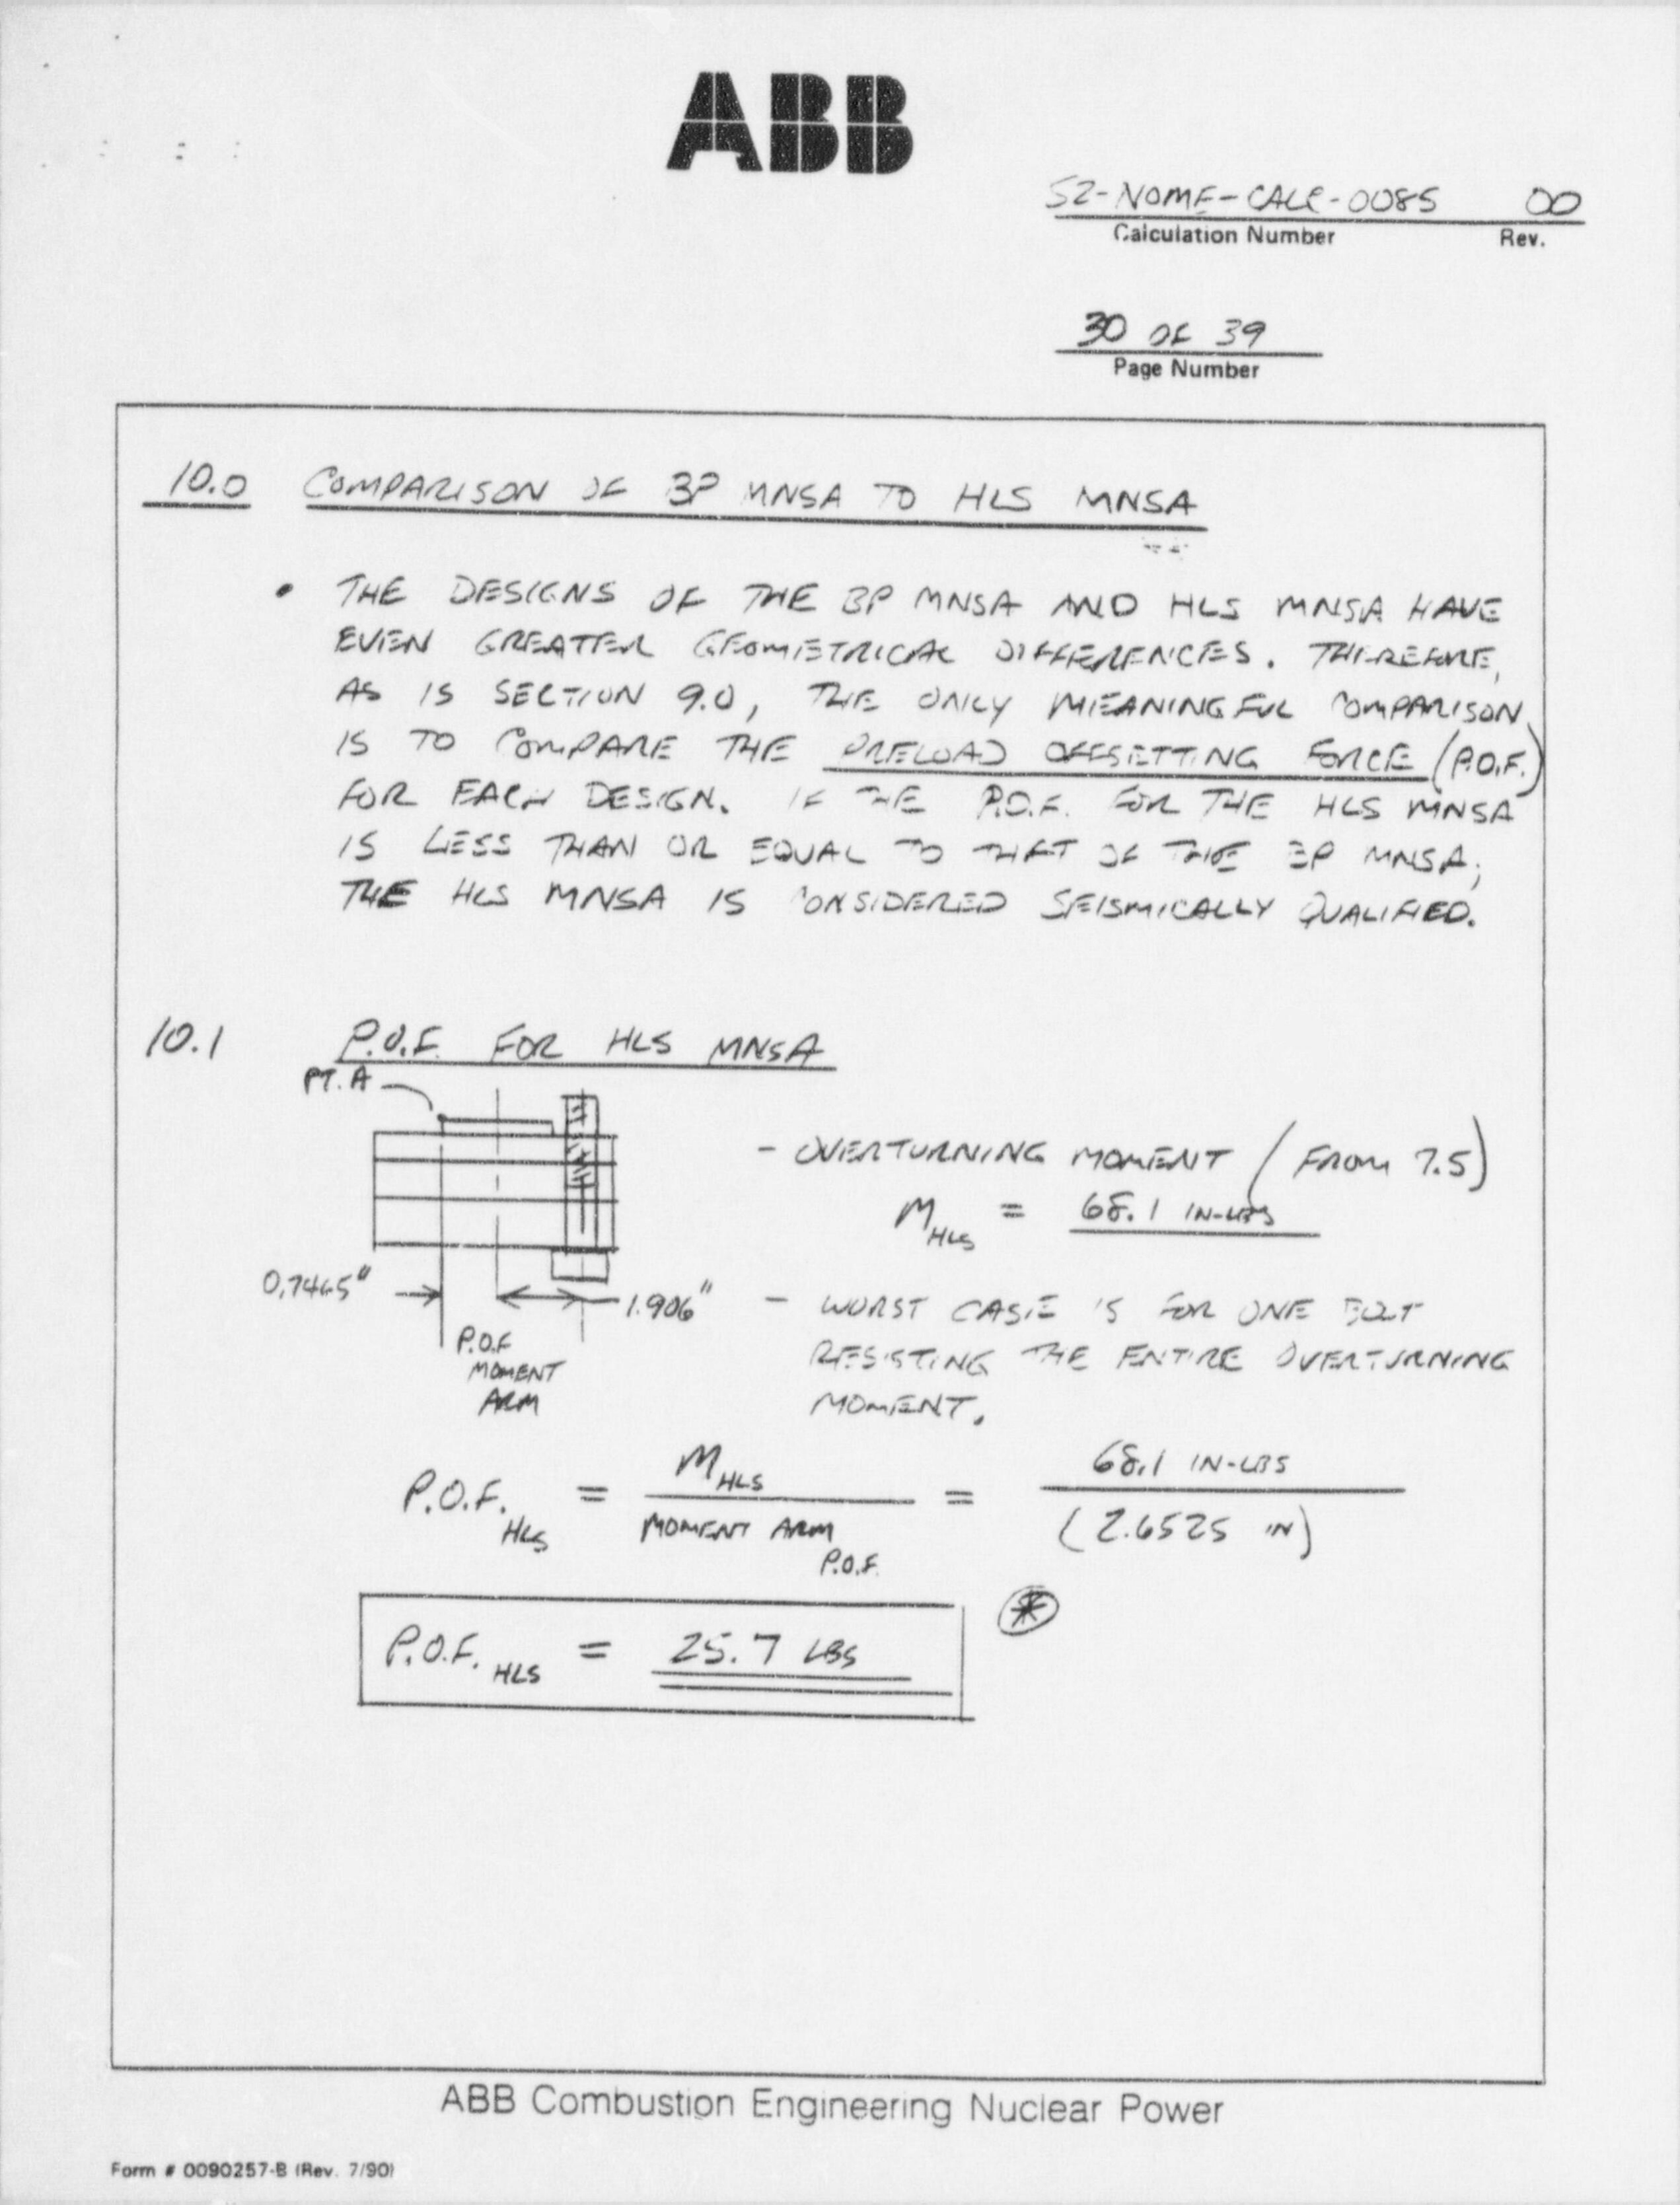 ABB
S2-NOME-CALC-0085 00
Calculation Number Rev.
30 OF 39
Page Number
10.0 COMPARISON OF BP MNSA TO HLS MNSA
• THE DESIGNS OF THE BP MNSA AND HLS MNSA HAVE
EVEN GREATER GEOMETRICAL DIFFERENCES. THEREFORE,
AS IS SECTION 9.0, THE ONLY MEANINGFUL COMPARISON
IS TO COMPARE THE PRELOAD OFFSETTING FORCE (P.O.F.)
FOR EACH DESIGN. IF THE P.O.F. FOR THE HLS MNSA
IS LESS THAN OR EQUAL TO THAT OF THE BP MNSA,
THE HLS MNSA IS CONSIDERED SEISMICALLY QUALIFIED.
10.1 P.O.F. FOR HLS MNSA
PT. A
- OVERTURNING MOMENT (FROM 7.5)
M HLS = 68.1 IN-LBS
0.7465" 1.906"
P.O.F
MOMENT
ARM
- WORST CASE IS FOR ONE BOLT
RESISTING THE ENTIRE OVERTURNING
MOMENT.
P.O.F. HLS = M HLS / MOMENT ARM P.O.F. = 68.1 IN-LBS / (2.6525 IN)
P.O.F. HLS = 25.7 LBS *
ABB Combustion Engineering Nuclear Power
Form # 0090257-B (Rev. 7/90)